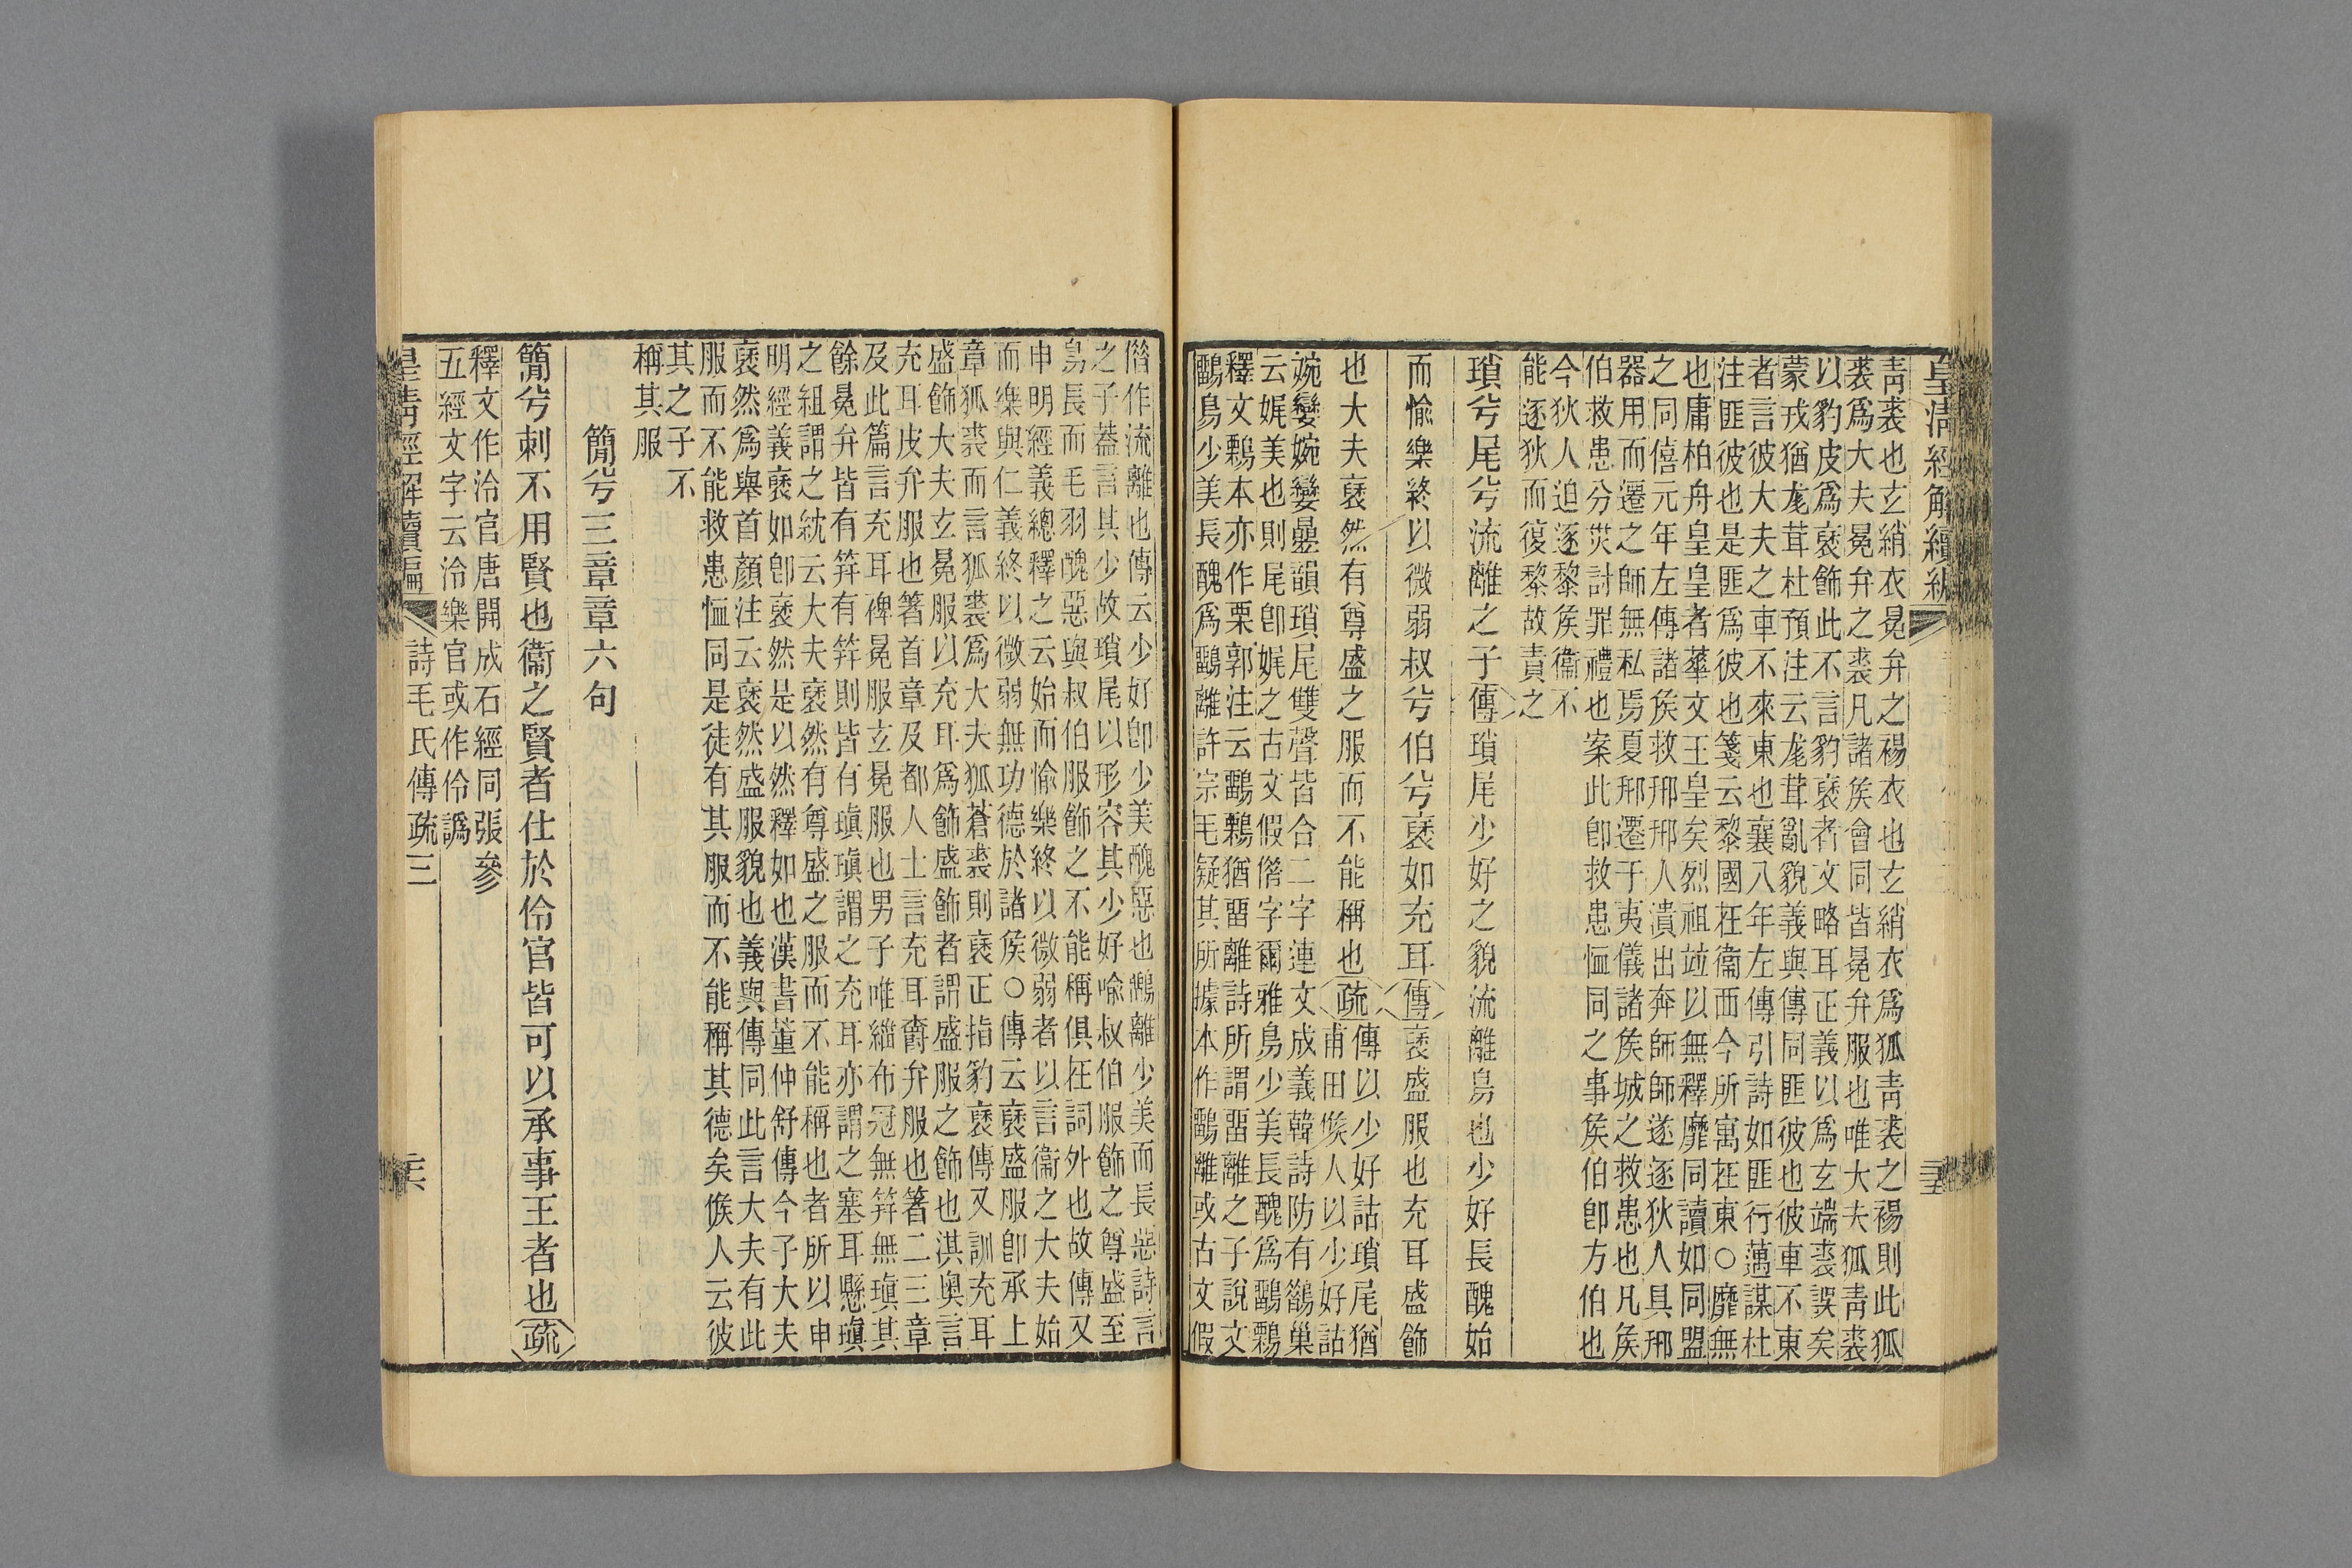 皇清經解續編
靑裘也玄綃衣冕弁之裼衣也玄綃衣爲狐靑裘之裼則此狐
裘爲大夫冕弁之裘凡諸矦會同皆冕弁服也唯大夫狐靑裘
以豹皮爲裦飾此不言豹裦者文略耳正義以爲玄端裘誤矣
蒙戎猶尨茸杜預注云尨茸亂貌義與傳同匪彼也彼車不東
者言彼大夫之車不來東也襄八年左傳引詩如匪行邁謀杜
注匪彼也是匪爲彼也箋云黎國在衞西今所寓在東○靡無
也庸柏舟皇皇者蕐文王皇矣烈祖竝以無釋靡同讀如同盟
之同僖元年左傳諸矦救邢邢人潰出奔師師遂逐狄人具邢
器用而遷之師無私焉夏邢遷于夷儀諸矦城之救患也凡矦
伯救患分災討罪禮也案此卽救患恤同之事矦伯卽方伯也
今狄人迫逐黎矦衞不
能逐狄而復黎故責之
瑣兮尾兮流離之子傳瑣尾少好之貌流離鳥也少好長醜始
而愉樂終以微弱叔兮伯兮裦如充耳傳裦盛服也充耳盛飾
也大夫裦然有尊盛之服而不能稱也疏傳以少好詁瑣尾猶
甫田候人以少好詁
婉孌婉孌曡韻瑣尾雙聲皆合二字連文成義韓詩防有鷊巢
云娓美也則尾卽娓之古文假僭字爾雅鳥少美長醜爲鷅鶹
釋文鶹本亦作栗郭注云鷅鶹猶畱離詩所謂畱離之子說文
鷅鳥少美長醜爲鷅離許宗毛疑其所據本作鷅離或古文假
僭作流離也傳云少好卽少美醜惡也鷅離少美而長惡詩言
之子蓋言其少故瑣尾以形容其少好喩叔伯服飾之尊盛至
鳥長而毛羽醜惡與叔伯服飾之不能稱俱在詞外也故傳又
申明經義總釋之云始而愉樂終以微弱者以言衞之大夫始
而樂與仁義終以微弱無功德於諸矦○傳云裦盛服卽承上
章狐裘而言狐裘爲大夫狐蒼裘則裦正指豹裦傳又訓充耳
盛飾大夫玄冕服以充耳爲飾盛飾者謂盛服之飾也淇奧言
充耳皮弁服也箸首章及都人士言充耳爵弁服也箸二三章
及此篇言充耳裨冕服玄冕服也男子唯緇布冠無笄無瑱其
餘冕弁皆有笄有笄則皆有瑱瑱謂之充耳亦謂之塞耳懸瑱
之組謂之紞云大夫裦然有尊盛之服而不能稱也者所以申
明經義裦如卽裦然是以然釋如也漢書董仲舒傳今子大夫
裦然爲舉首顏注云裦然盛服貌也義與傳同此言大夫有此
服而不能救患恤同是徒有其服而不能稱其德矣候人云彼
其之子不
稱其服
簡兮三章章六句
簡兮刺不用賢也衞之賢者仕於伶官皆可以承事王者也疏
釋文作泠官唐開成石經同張參
五經文字云泠樂官或作伶譌
皇淸經解續編
詩毛氏傳疏三